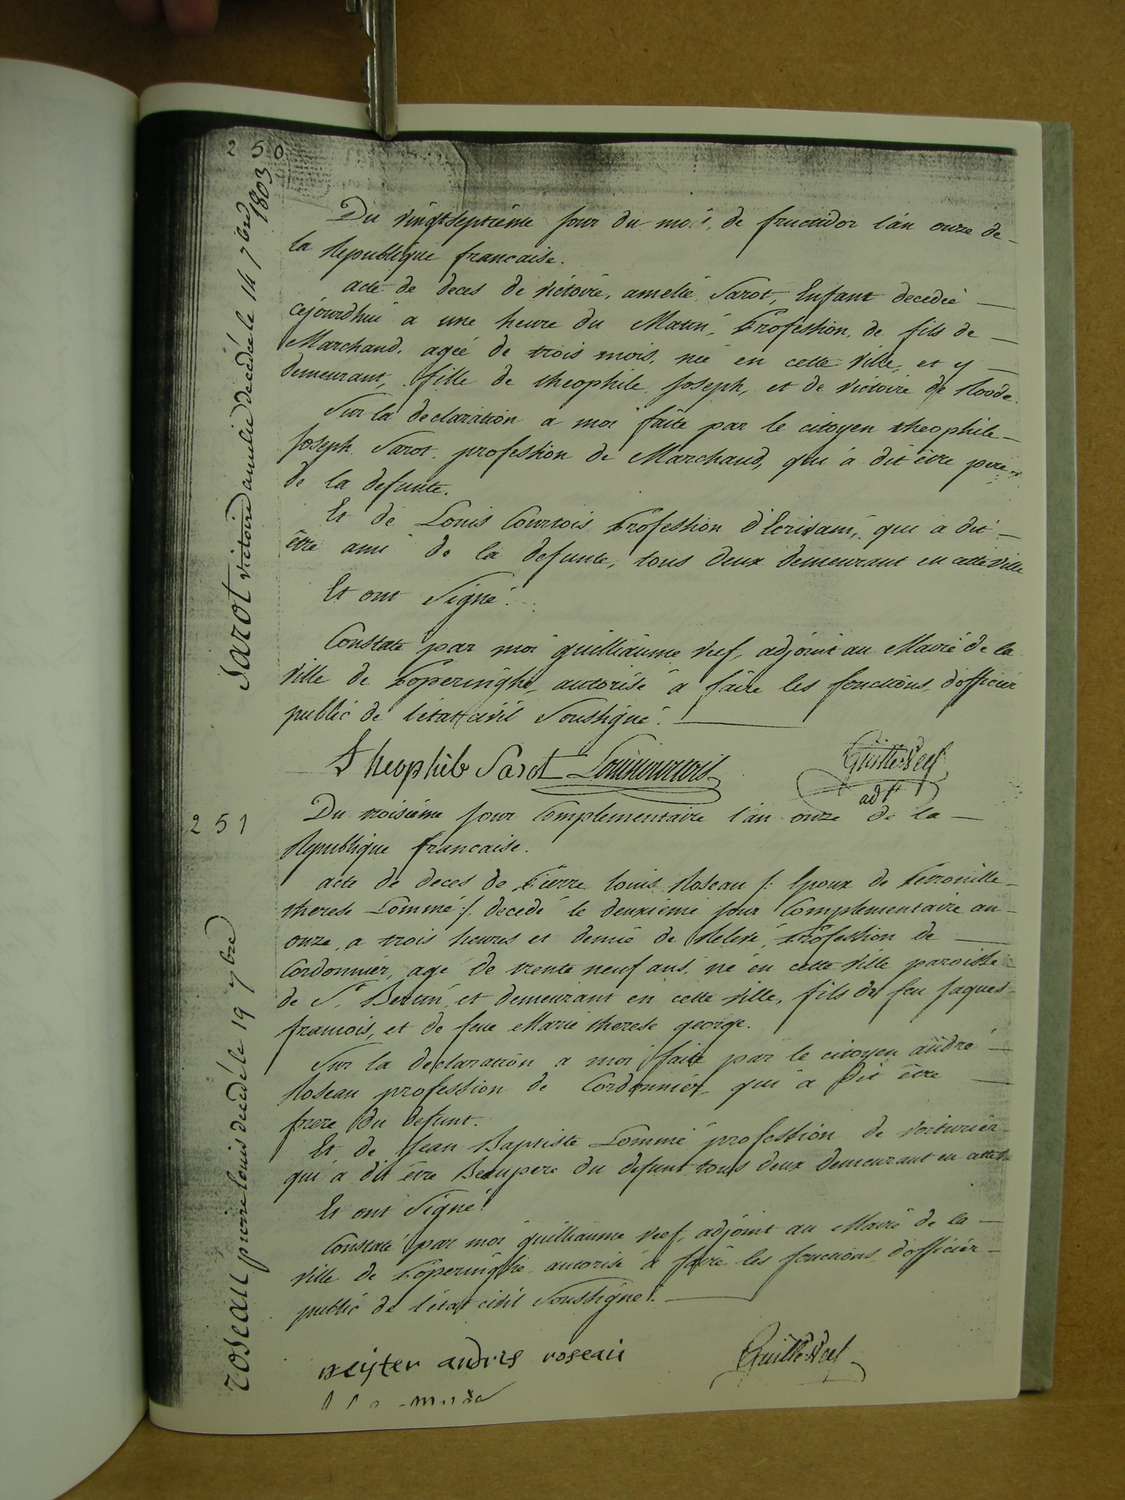 250
Sarot victoire amelie decedée le 14 7bre 1803
Du vingtseptiéme jour du mois de fructidor l'an onze de
la Republique francaise.
acte de deces de victoire, amelie Sarot, Enfant decedée
cejourdhui a une heure du Matin, Profession de fils de
Marchand, ageé de trois mois, neé en cette ville, et y
demeurant, fille de theophile Joseph, et de victoire de Roode.
Sur la declaration a moi faite par le citoyen theophile
Joseph Sarot. profession de Marchand, qui a dit être pere
de la defunte.
Et de Louis Courtois Profession d'Ecrivain, qui a dit
être ami de la defunte, tous deux demeurant en cette ville
Et ont Signé.
Constaté par moi guilliaume neef, adjoint au Mairé de la
ville de Poperinghe, autorisé a faire les fonctions d'officier
public de l'etat civil Soussigné.
Theophile Sarot Louis Courtois Guille Neef
adjt
251
roseau pierre louis decedé le 19 7bre
Du troisiéme jour Complementaire l'an onze de la
Republique francaise.
acte de deces de Pierre louis Roseau /: Epoux de Petronille
therese Lommé :/ decedé le deuxiéme jour Complementaire an
onze, a trois heures et demie de Relevé, Profession de
Cordonnier, agé de trente neuf ans, né en cette ville paroisse
de St. Bertin, et demeurant en cette ville, fils de feu Jaques
francois, et de feue Marie therese george.
Sur la declaration a moi faite par le citoyen andré
Roseau profession de Cordonnier, qui a dit être
frere du defunt.
Et de Jean Baptiste Lommé profession de voiturier
qui a dit être Beaupere du defunt tous deux demeurant en cette
Et ont Signé.
Constaté par moi guilliaume neef, adjoint au Mairé de la
ville de Poperinghe autorisé a faire les fonctions d'officier
public de l'etat civil Soussigné.
andris roseau Guille Neef